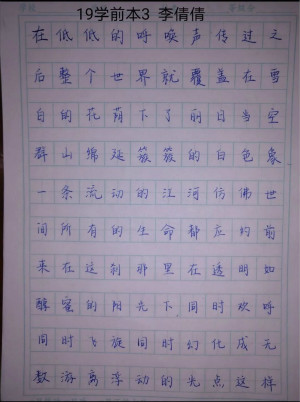 19学前本3 李倩倩
在低低的呼唤声传过之
后整个世界就覆盖在雪
白的花荫下了丽日当空
群山绵延簇簇的白色象
一条流动的江河仿佛世
间所有的生命都应约前
来在这刹那里在透明如
醇蜜的阳光下同时欢呼
同时飞旋同时幻化成无
数游离浮动的光点这样